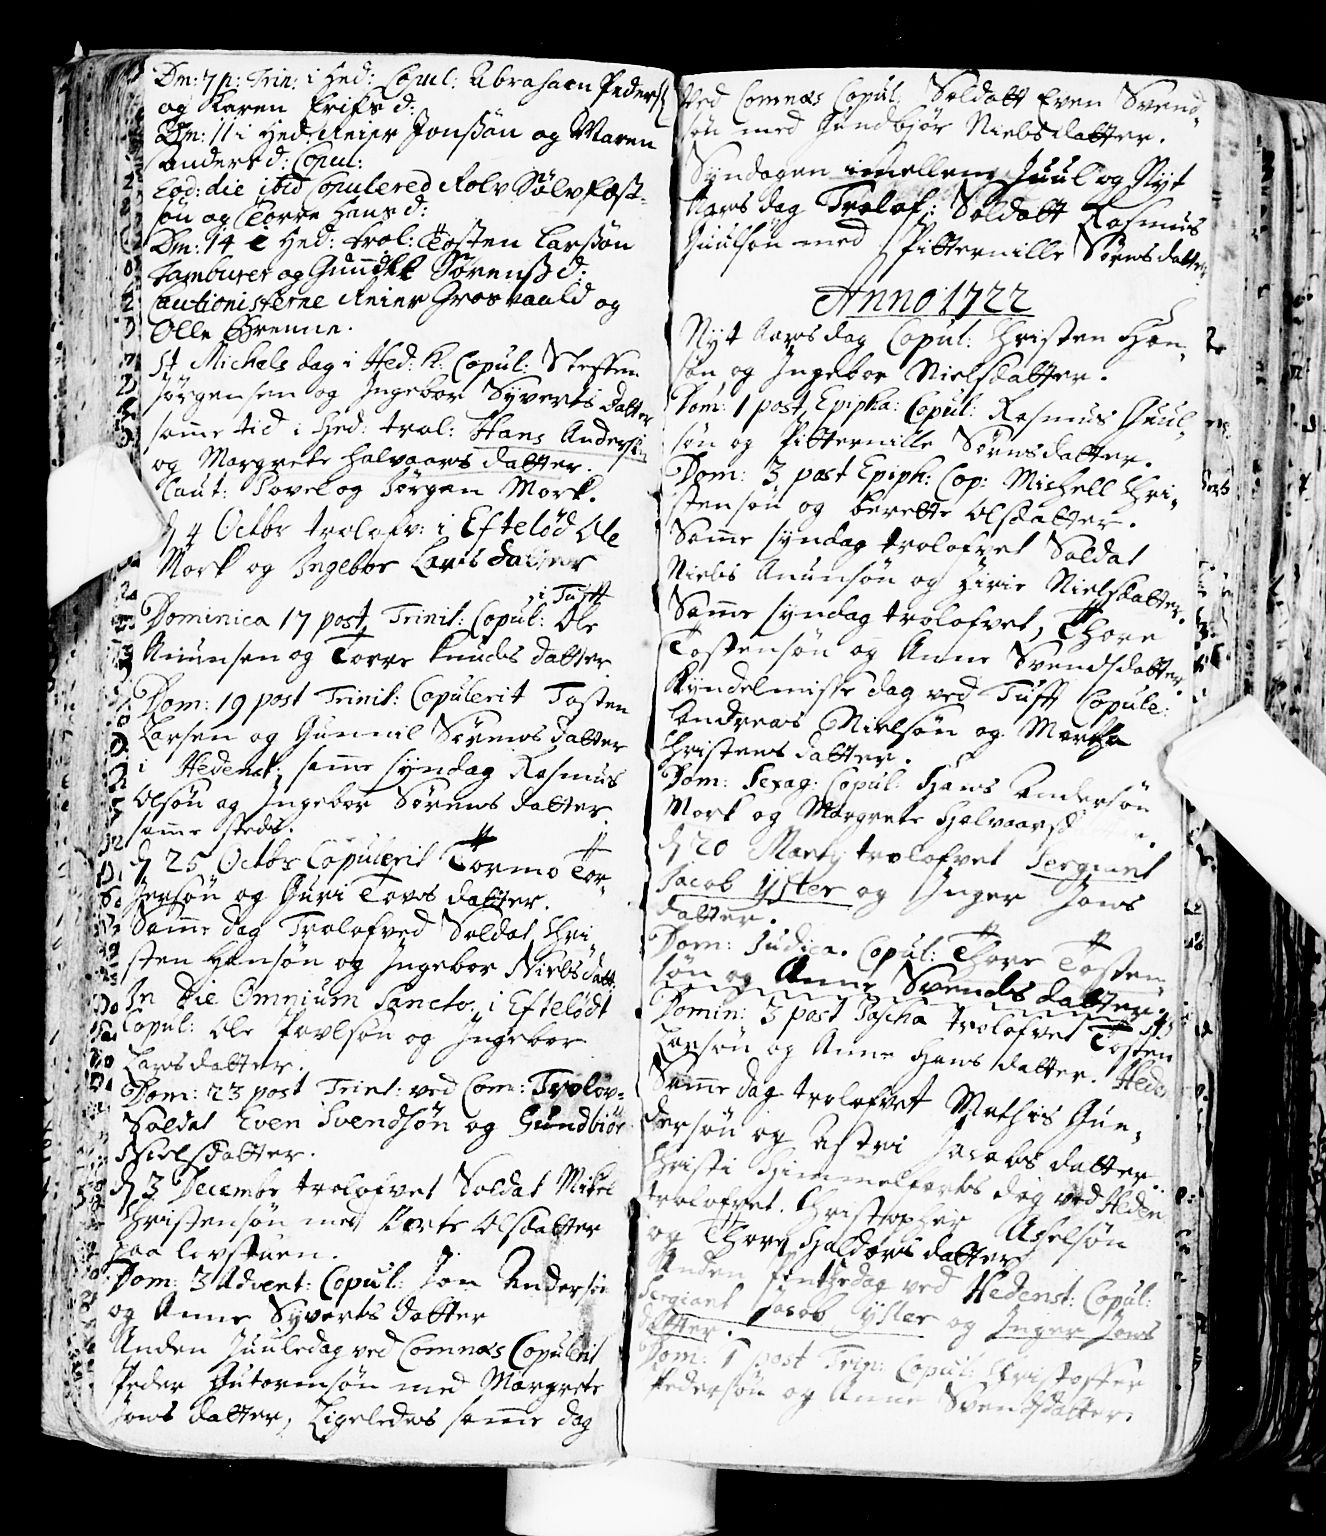 Dm: 7 p: Trin: i Hed: Copul: Abraham Peders:
og Karen Erichs d:
Dm: 11 i Hed: Reier Jonssön og Maren
Anders d: Copul:
Eod: die ibid Copulered Rolv Sölvfæst-
søn og Torre Hans d:
Dm: 14 e Hed: trol: Tosten Larssön
Tamburer og Gunild Sörenss d:
Cautionisterne Reier Grosvaald og
Olle Brenne.
St Michels dag i Hed: K: Copul: Steffen
Jörgensen og Ingebor Syverts datter
same tid i Hed: trol: Hans Andersøn
og Margrete Halvaars datter.
Caut: Povel og Jörgen Mork.
d 4 Octbr trolofv: i Eftelød Ole
Mork og Ingebor Lars datter
i Tufft
Dominica 17 post Trinit: Copul: Ole
Anunsen og Torre Knuds datter
Dom: 19 post Trinit: Copulerit Tosten
Larsen og Gunnil Sørens datter
i Hedenst: same syndag Rasmus
Olsøn og Ingebor Sørens datter
same steds.
d 25 Octbr Copulerit Tormo Tor-
jersøn og Guri Tovs datter.
Same dag Trolofved Soldat Chri
sten Hansøn og Ingebor Niels datt:
In Die Omnium Sancto: i Eftelødt
Copul: Ole Povlsøn og Ingebor
Larsdatter.
Dom: 23 post Trint: ved Com: Troløv-
Soldat Even Svendsøn og Gundbiör
Nielsdatter.
d 3 Decembr trolofvet Soldat Mikel
Christensøn med Berte Olsdatter
paa Lovstuen.
Dom: 3 Advent: Copul: Jon Andersøn
og Anne Syverts datter
Anden Juuledag ved Comnæs Copulerit
Peder Gutormsøn med Margrete
Jons datter, Ligeledes same dag
Ved Comnæs Copul: Soldatt Even Svend-
søn med Gundbjör Nielsdatter.
Syndagen imellem Juul og Nyt
Aars dag Trolof: Soldatt Rasmus
Juulsøn med Pitternille Sørensdatter
Anno 1722
Nyt Aarsdag Copul: Christen Han-
søn og Ingebor Nielsdatter.
Dom: 1 post Epipha: Copul: Rasmus Juul-
søn og Pitternille Sørnsdatter.
Dom: 3 post Epiph: Cop: Michell Chri-
stensøn og berette Olsdatter.
Same syndag trolofvet Soldat
Niels Anunsøn og Sirie Nielsdatter.
Same syndag trolofvet, Thore
Tostensøn og Anne Svendsdatter.
Kyndelmisse dag ved Tufft Copule:
Andreas Nielsøn og Martha
Christens datter.
Dom: Sexag: Copul: Hans Andersøn
Mork og Margrete Halvaarsd
d 20 Martij trolofvet Sergiant
Jacob Yster og Inger Jons
datter.
Dom: Judica. Copul: Thore Tosten-
søn og Anne Svends datter.
Domin: 3 post Pascha trolofvet Tosten
Larsøn og Anne Hans datter. Heden
Same dag trolofvet Mathis Gun-
dersøn og Astri Jacobs datter.
Christi Himmelfarts dag ved Heden
trolofvet. Christopher Axelsøn
og Thore Haldors datter
Anden Pintzedag ved Hedenst: Copul:
Sergiant Jacob Yster og Inger Jons
datter.
Dom: 1 post Trin: Copul: Christoffer
Pedersøn og Anne Svendsdatter.